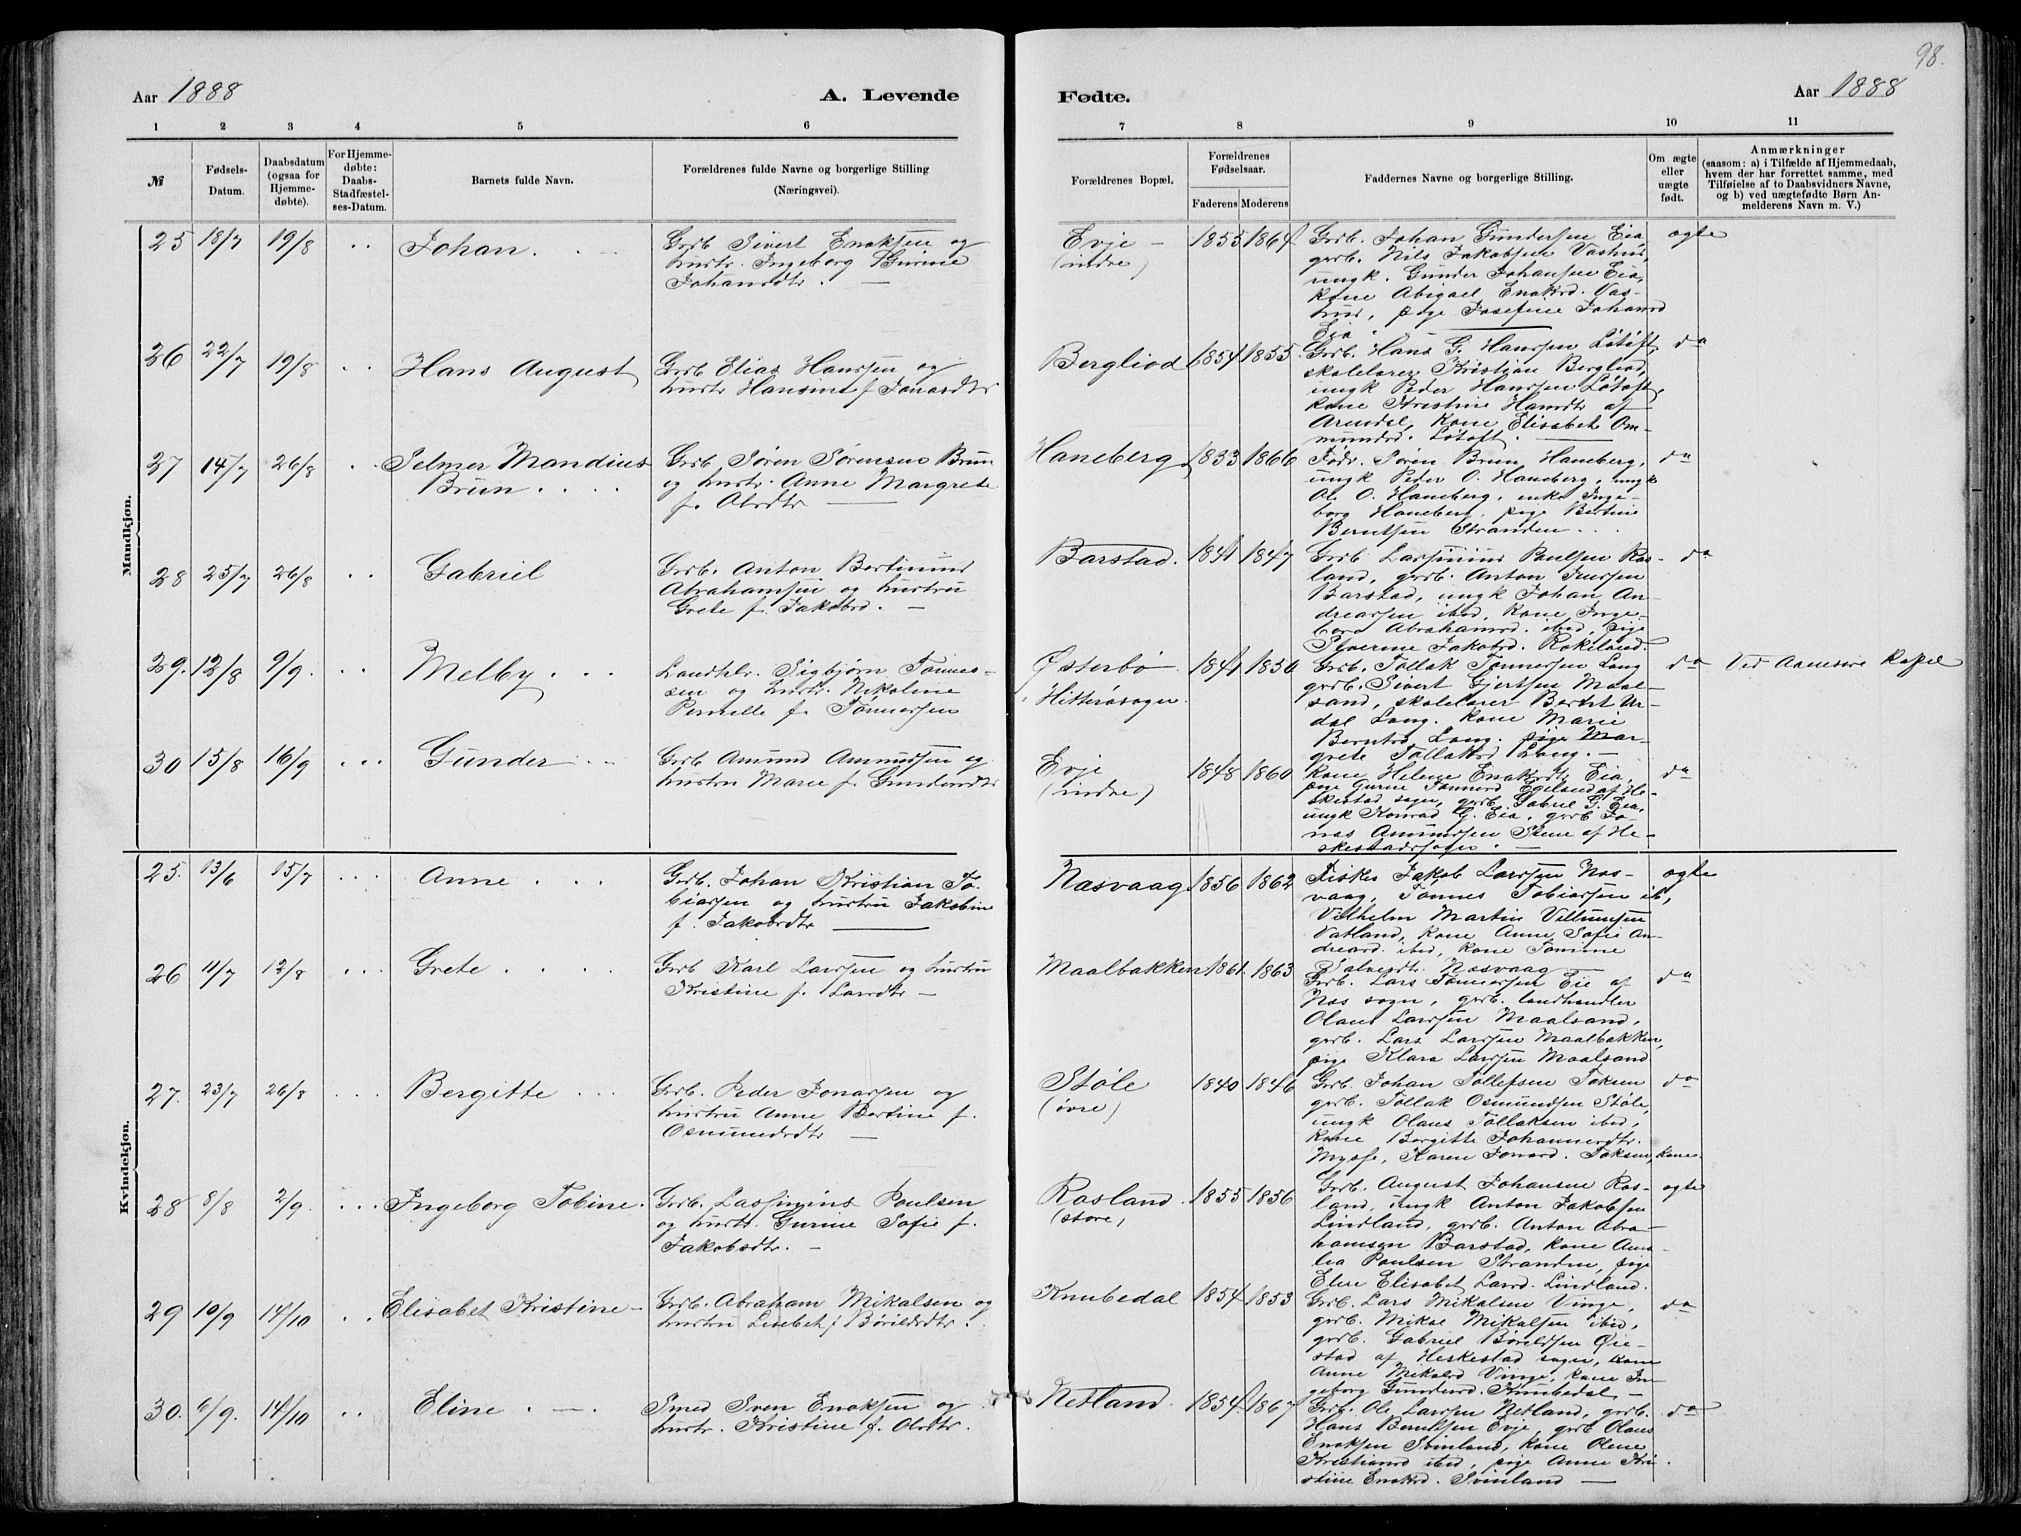 98.
Aar 1888
A. Levende
Fødte.
Aar 1888
1 2 3 4 5 6 7 8 9 10 11
№
Fødsels-
Datum.
Daabsdatum
(ogsaa for
Hjemme-
døbte).
For Hjemme-
døbte:
Daabs-
Stadfæstel-
ses-Datum.
Barnets fulde Navn.
Forældrenes fulde Navne og borgerlige Stilling
(Næringsvei).
Forældrenes Bopæl.
Forældrenes
Fødselsaar.
Faderens Moderens
Faddernes Navne og borgerlige Stilling.
Om ægte
eller
uægte
født.
Anmærkninger
(saasom: a) i Tilfælde af Hjemmedaab,
hvem der har forrettet samme, med
Tilføielse af to Daabsvidners Navne,
og b) ved uægtefødte Børn An-
melderens Navn m. V.)
Mandkjøn.
25 18/7 19/8 Johan.
Grdb Sivert Enoksen og
hustr. Ingeborg Gurine
Johansdtr.
Evje
(indre)
1855 1864
Grdb. Johan Gundersen Eia,
grdb. Nils Jakobsen Vashus,
ungk. Gunder Johansen Eia,
kone Abigael Enoksd. Vas-
hus, pige Josefine Johansd
Eia.
ægte
26 22/7 19/8 Hans August
Grdb Elias Hanssen og
hustr Hansine f Jonasdtr
Bergliod 1854 1855
Grdb. Hans G. Hanssen Løtoft,
skolelærer Kristian Bergliod,
ungk Peder Hanssen Løtoft,
kone Kristine Hansdtr af
Arendal, kone Elisabet Om-
mundsd. Løtoft.
do
27 14/7 26/8 Selmer Mandius
Brun
Grdb. Søren Sørensen Brun
og hustr. Anne Margrete
f. Olsdtr
Haneberg 1833 1866
Fødr. Søren Brun Haneberg,
ungk Peder O. Haneberg, ungk
Ole O. Haneberg, enke Inge-
borg Haneberg, pige Bertine
Berntsen Stranden
do
28 25/7 26/8 Gabriel
Grdb. Anton Bertinius
Abrahamsen og hustru
Grete f. Jakobsd.
Barstad. 1841 1847
Grdb Larsinius Paulsen Ros-
land, grdb. Anton Iversen
Barstad, ungk Johan An-
dreassen ibid, kone Inge-
borg Abrahamsd. ibid, pige
Severine Jakobsd. Rokeland.
do
29. 12/8 9/9. Melby
Landhlr. Sigbjørn Tønnes-
sen og hustr. Nikoline
Pernille f. Tønnessen
Østerbø
Hitterøsogn
1841 1850
Grdb. Tollak Tønnessen Laug
grdb. Sivert Gjertsen Maal-
sand, skolelærer Berent Ur-
dal Laug. kone Marie
Berntsd Laug. pige Mar-
grete Tollaksd Laug.
do Ved Aanesire Kapel
30 15/8 16/9 Gunder
Grdb Amund Amundsen og
hustru Marie f. Gundersdtr
Evje
(indre)
1848 1860
kone Helene Enoksdtr Eia,
pige Gurine Tønnesd Egeland af He-
skestad sogn, grdb. Gabriel G. Eia,
ungk Konrad G. Eia, grdb Jo-
nas Amundsen Stene af He-
skestadsogn.
do
Kvindekjøn.
25. 13/6 15/7 Anne
Grdb. Johan Kristian To-
biassen og hustru Jakobine
f. Jakobsdtr
Næsvaag 1856 1862
Fisker Jakob Larssen Næs-
vaag, Tønnes Tobiassen ib,
Vilhelm Martin Villumsen
Vatland, kone Anne Sofie An-
dreasd. ibid, kone Tomine
Salvesdt. Næsvaag
ægte
26 11/7 12/8 Grete
Grdb Karl Larssen og hustru
Kristine f. Larsdtr
Maalbakken 1861. 1863
Grdb. Lars Tønnessen Eie af
Næs sogn, grdb. landhandler
Olaus Larssen Maalsand,
grdb. Lars Larssen Maalbakken,
pige Klara Larssen Maalsand
do
27. 23/7 26/8 Bergitte
Grdb. Peder Jonassen og
hustru Anne Bertine f.
Osmundsdtr
Støle
(øvre)
1840 1846
Grdb. Johan Tollefsen Toksen
grdb. Tollak Osmundsen Støle,
ungk Olaus Tollaksen ibid,
kone Bergitte Johannesdtr.
Mysse, Karen Jonasd. Toksen, kone.
do
28 8/8 2/9. Ingeborg Tobine.
Grdb. Lassimius Poulsen
og hustr. Gurine Sofie f.
Jakobsdtr.
Rosland.
(store)
1855 1856
Grdb. August Johansen Ros-
land, ungk Anton Jakobsen
Lindland, grdb. Anton Abra-
hamsen Barstad, kone Ama-
lia Paulsen Stranden, pige
Elen Elisabet Larsd. Lindland.
ægte
29 10/9 14/10 Elisabet Kristine
Grdb. Abraham Mikalsen og
hustru Lisebet f. Børildsdtr.
Knubedal 1854 1853
Grdb. Lars Mikalsen Vinge,
grdb. Mikal Mikalsen ibid,
grdb. Gabriel Børildsen Øie-
stad af Heskestad sogn, kone
Anne Mikalsd Vinge, kone In-
geborg Gundersd. Knubedal
do
30. 6/9. 14/10 Eline
Smed Sven Enoksen og
hustr. Kristine f. Olsdtr.
Netland. 1854 1867
Grdb. Ole Larssen Netland, grdb.
Hans Berntsen Evje, grdb Olaus
Enoksen Svinland, kone Olene
Kristiansd ibid, pige Anne Kri-
stine Enoksd. Svinland
do